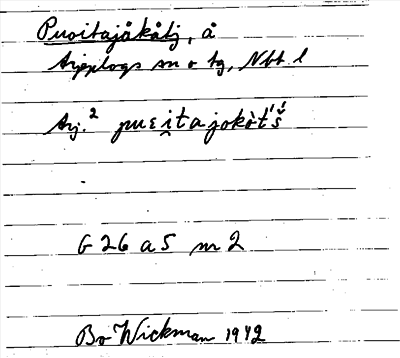 Puoitajåkåtj, å
Arjeplogs sn o tg, Nbt. l
Arj.² puɛi̭tajokòt́š́
G 26 a 5 m 2
Bo Wickman 1942